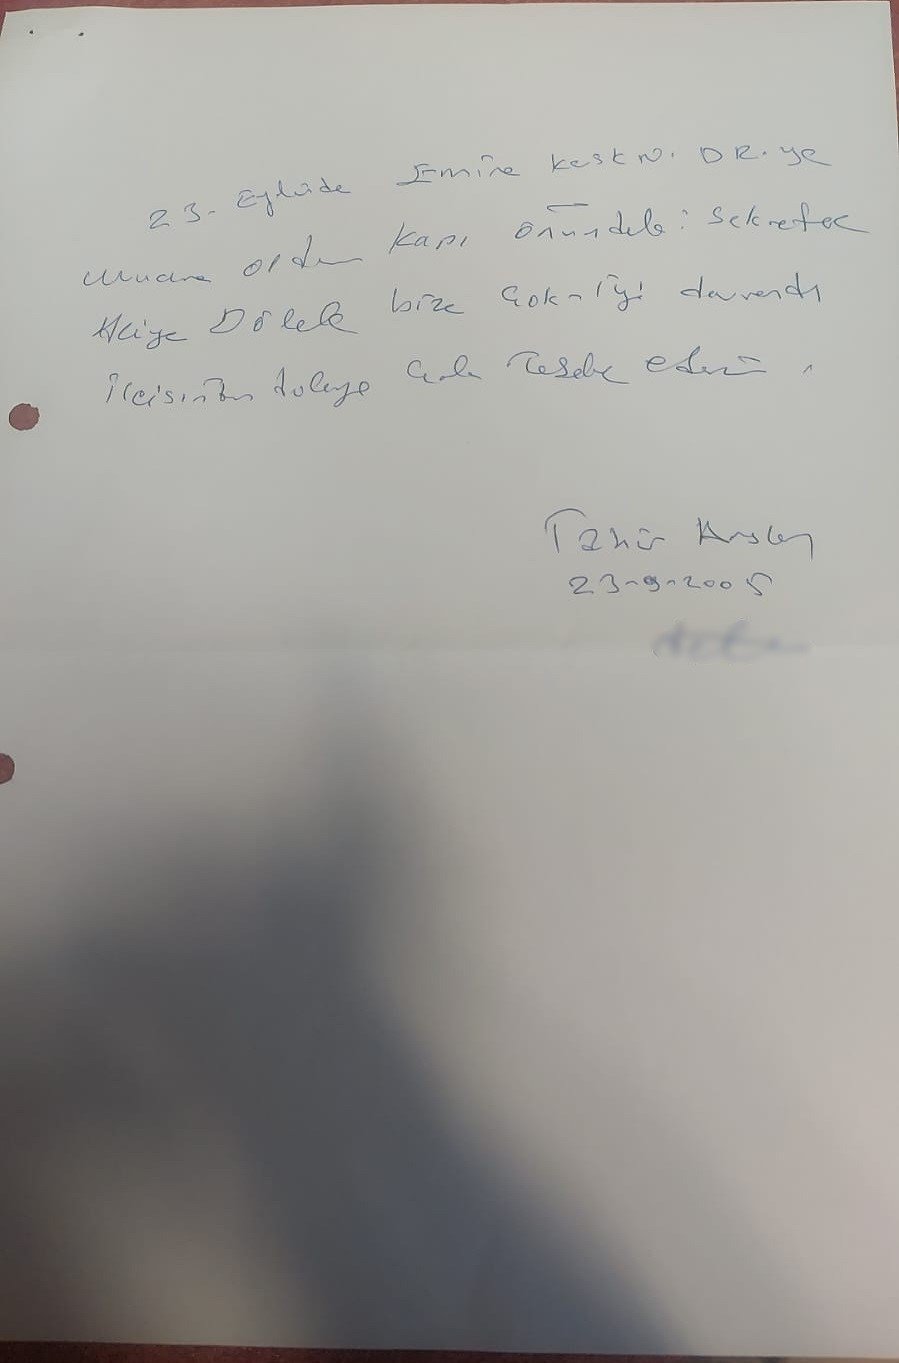 23. Eylülde Emine Keskin. DR. ye
muane oldum Kapı önündeki sekreter
Dölek bize çok iyi davrandı
ilgisinden dolayı çok ederim
Tahir Arslan
23-9-2005